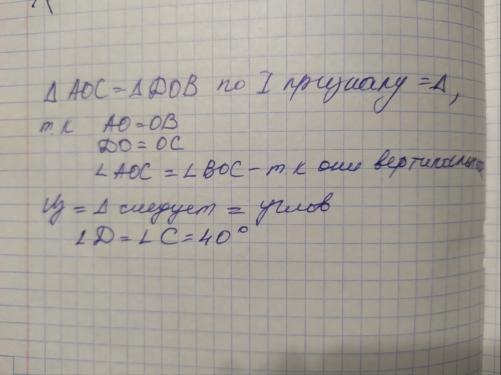 Δ AOC = Δ DOB по I признаку = Δ,
т.к AO = OB
DO = OC
∠AOC = ∠BOC - т к они вертикальные
Из = Δ следует = углов
∠D = ∠C = 40°